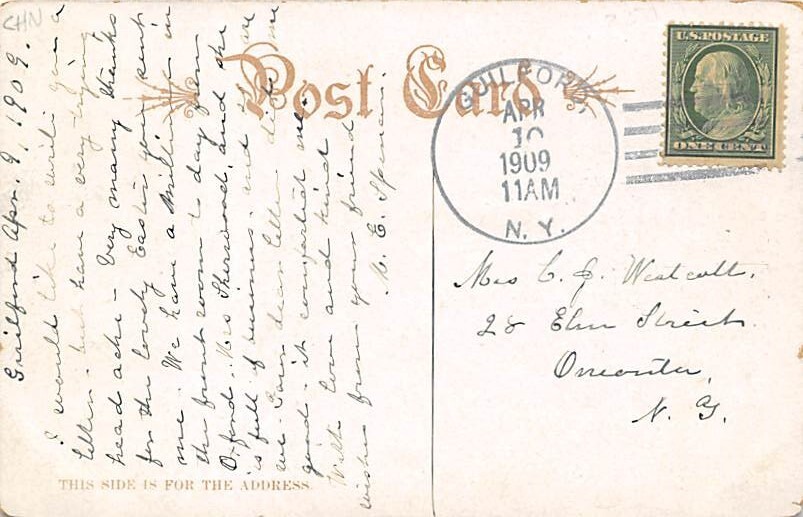 CHN
Post Card
U.S. POSTAGE
ONE CENT
GUILFORD,
APR
10
1909
11AM
N.Y.
Guilford Apr. 9, 1909.
I would like to write you a
letter, but have a very trying
head ache - Very many thanks
for the lovely Easter you sent
me. We have a Milliner in
the front room to day from
Oxford, Mrs Sherwood, and she
is full of and is here
Your dear letter did me
good - it comforted me.
With love and kind
wishes from your friend
M. E. Spencer.
Mrs C. J. Westcott.
28 Elm Street
Oneonta,
N. Y.
THIS SIDE IS FOR THE ADDRESS.